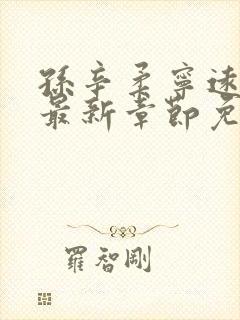 孫辛柔寧遠
最新章節免
羅智剛